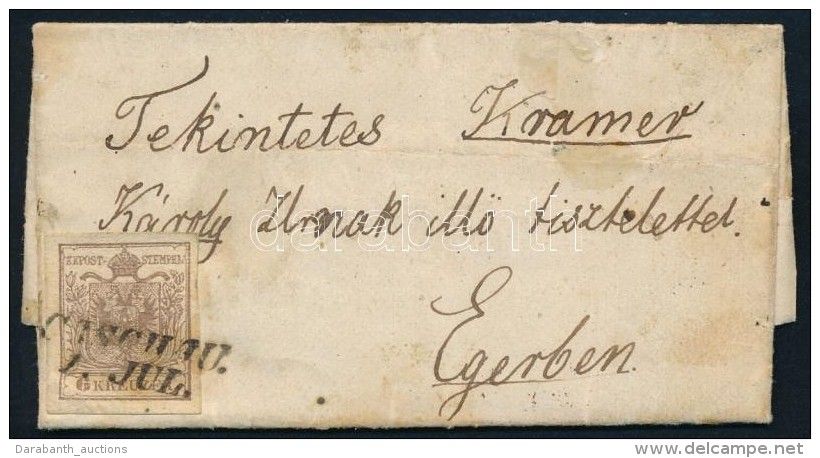 Tekintetes Kramer
Károly Urnak illő tisztelettel.
Egerben.
KKPOST-STEMPEL
6 KREUZER
CASCHAU.
1. JUL.
darabanth
Darabanth_auctions
delcampe.net